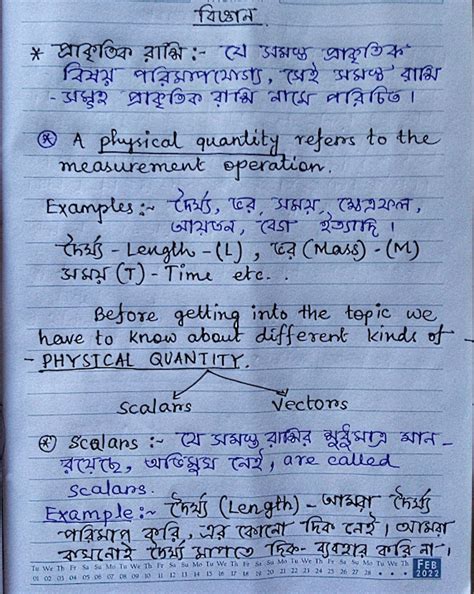 বিজ্ঞান.
* প্রাকৃতিক রাশি :- যে সমস্ত প্রাকৃতিক
বিষয় পরিমাপযোগ্য, সেই সমস্ত রাশি
-সমূহ প্রাকৃতিক রাশি নামে পরিচিত।
* A physical quantity refers to the
measurement operation.
Examples:~ দৈর্ঘ্য, ভর, সময়, ক্ষেত্রফল,
আয়তন, বেগ ইত্যাদি।
দৈর্ঘ্য - Length - (L), ভর (Mass) - (M)
সময় (T) - Time etc. .
Before getting into the topic we
have to know about different kinds of
- PHYSICAL QUANTITY.
Scalars Vectors
* Scalars :~ যে সমস্ত রাশির শুধুমাত্র মান-
রয়েছে, অভিমুখ নেই, are called
Scalars.
Example:~ দৈর্ঘ্য (Length) - আমরা দৈর্ঘ্য
পরিমাপ করি, এর কোনো দিক নেই। আমরা
কখনোই দৈর্ঘ্য মাপতে দিক- ব্যবহার করি না।
Tu We Th Fr Sa Su Mo Tu We Th Fr Sa Su Mo Tu We Th Fr Sa Su Mo Tu We Th Fr Sa Su Mo FEB
01 02 03 04 05 06 07 08 09 10 11 12 13 14 15 16 17 18 19 20 21 22 23 24 25 26 27 28 2022